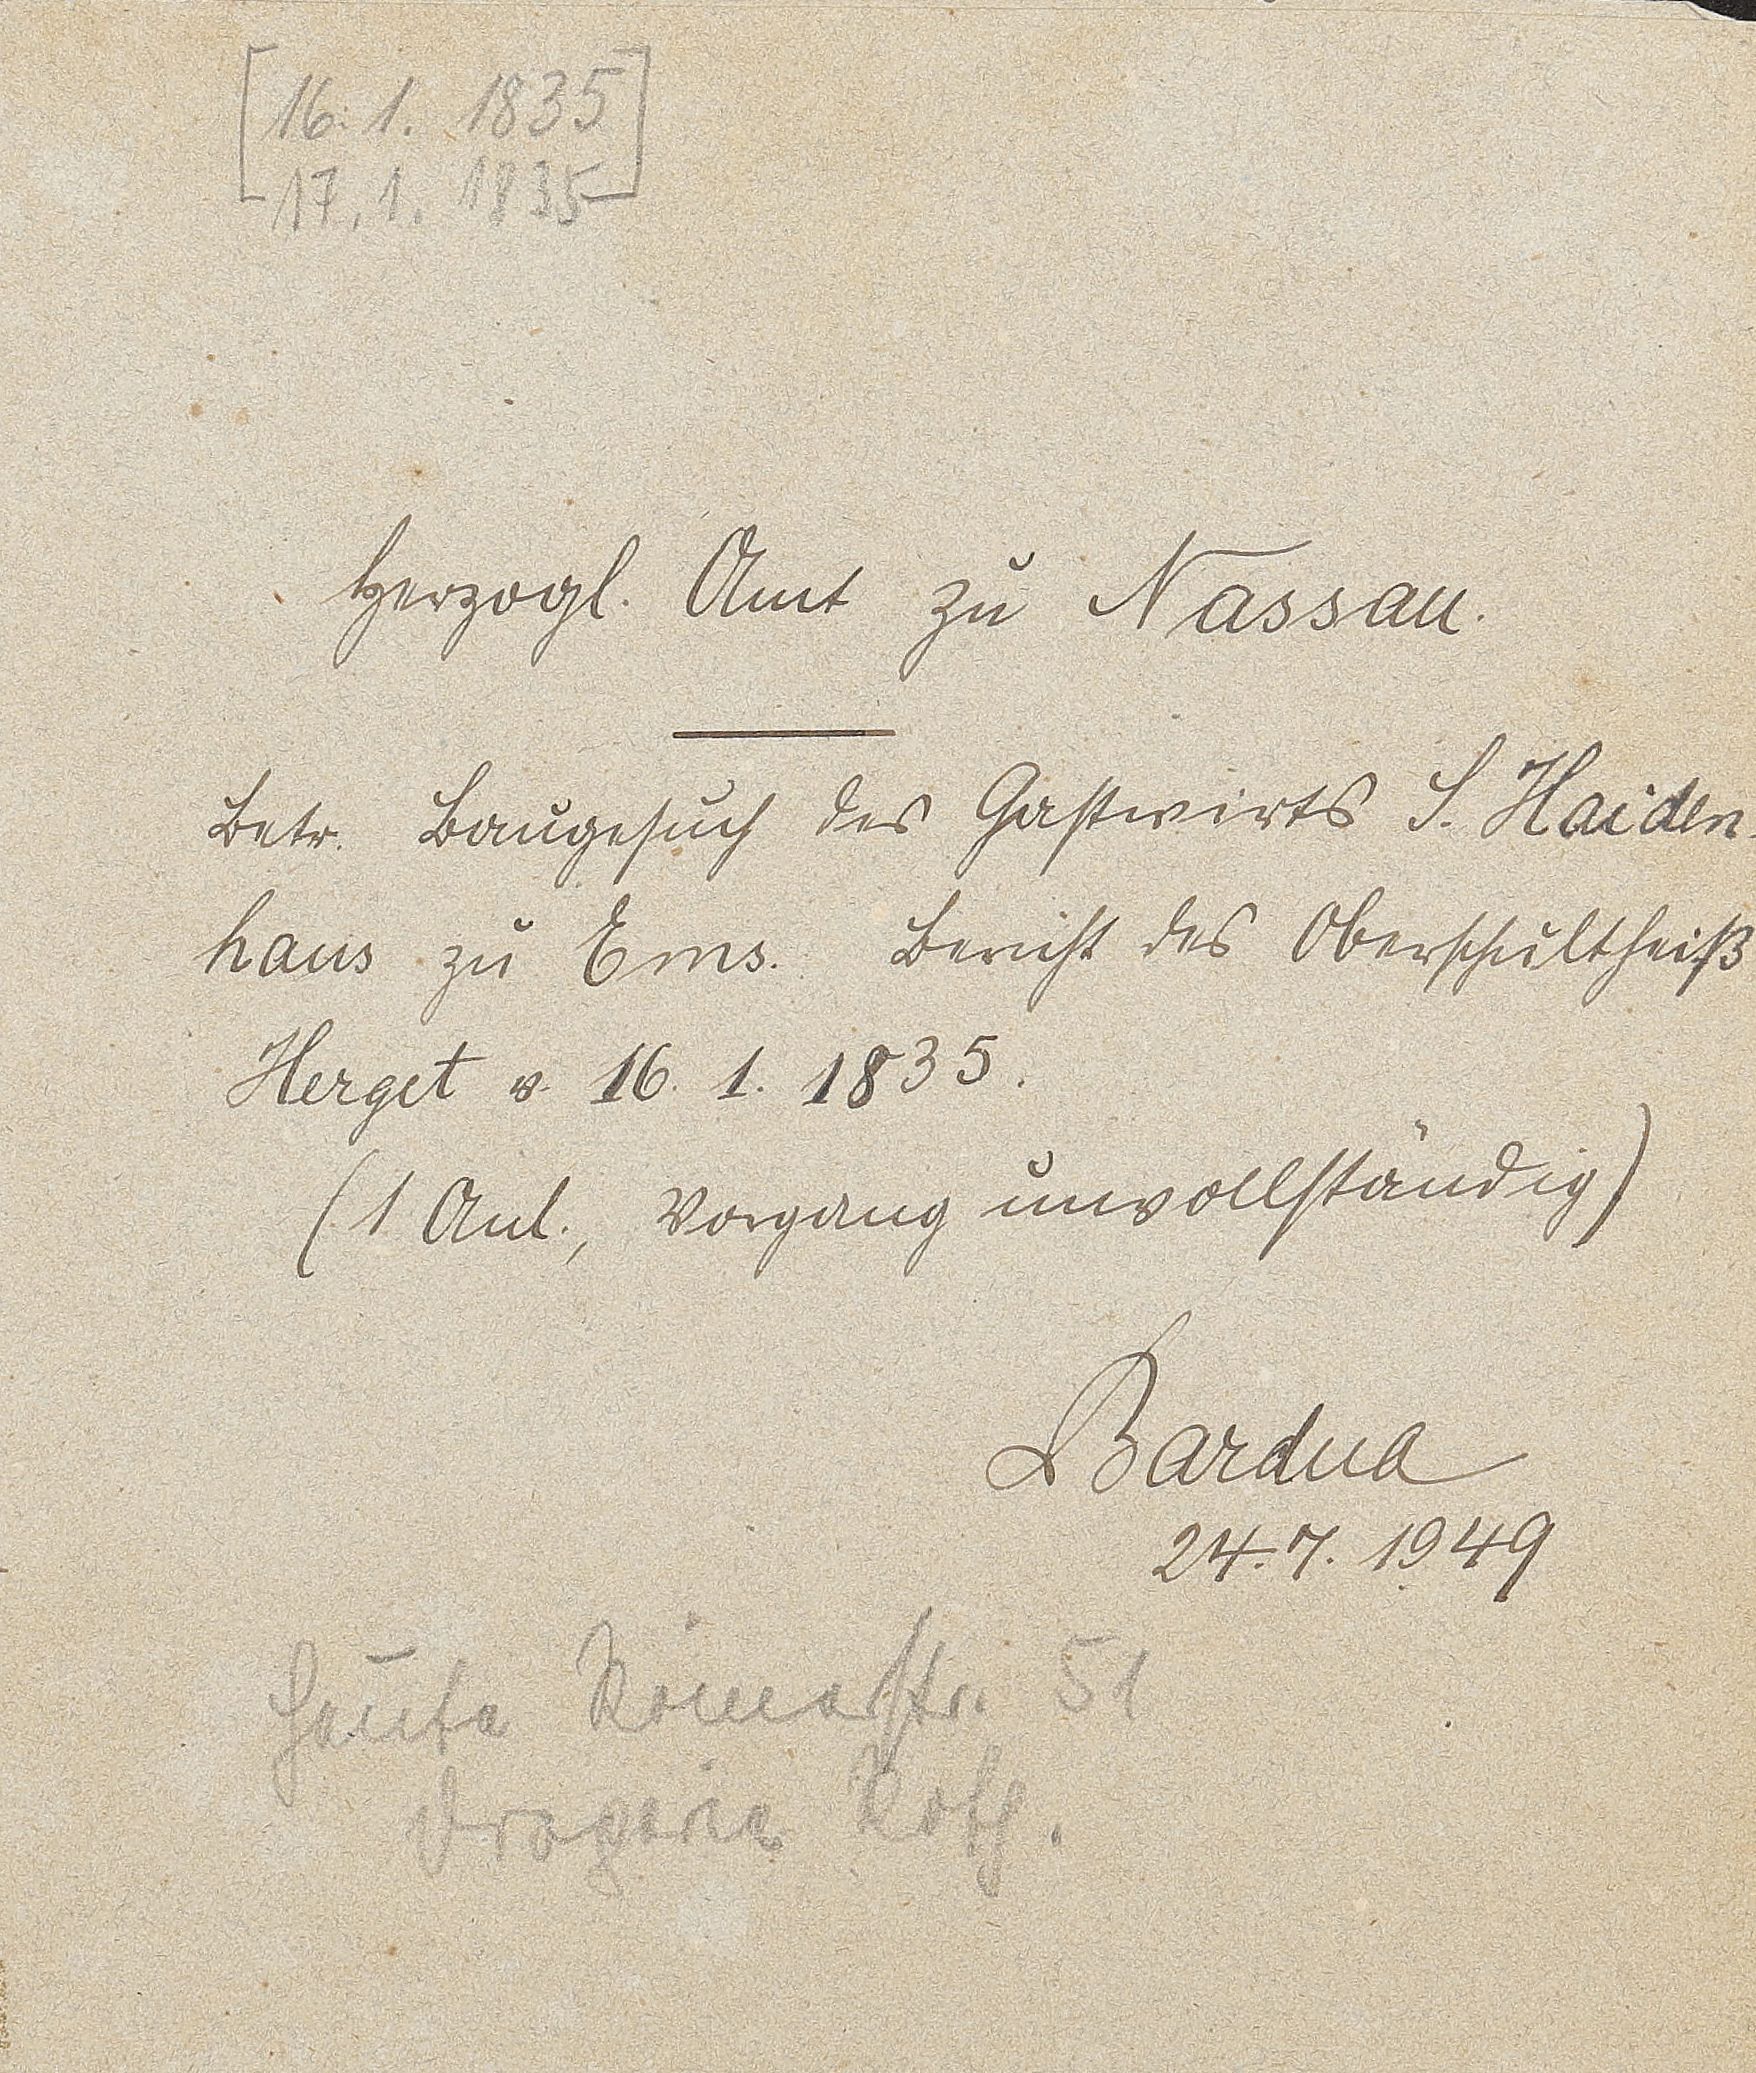 [16. 1. 1835
17. 1. 1835]
Herzogl. Amt zu Nassau.
Betr. Baugesuch des Gastwirts S. Haiden-
haus zu Ems. Bericht des Oberschultheiß
Herget v. 16. 1. 1835.
(1 Anl., Vorgang unvollständig)
Bardua
24. 7. 1949
Heute Römerstr. 51
Drogerie